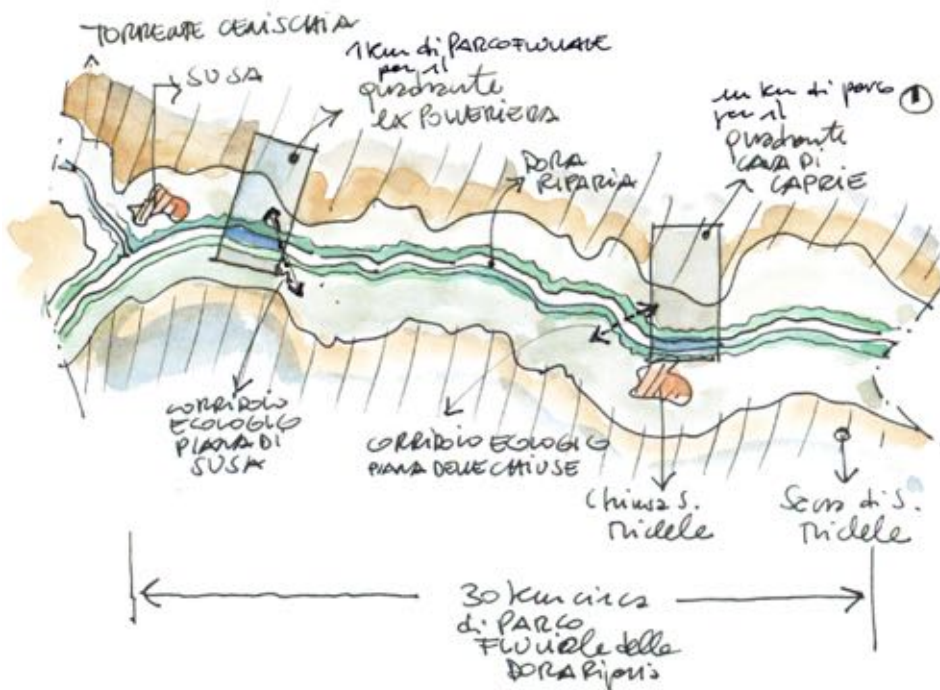 TORRENTE CENISCHIA
SUSA
1 km di PARCO FLUVIALE
per il
quadrante
EX POLVERIERA
un km di parco
per il
quadrante
CAVA DI
CAPRIE
1
DORA
RIPARIA
CORRIDOIO
ECOLOGICO
PIANA DI
SUSA
CORRIDOIO ECOLOGICO
PIANA DELLE CHIUSE
Chiusa S.
Michele
Sacra di S.
Michele
30 km circa
di PARCO
FLUVIALE della
DORA Riparia